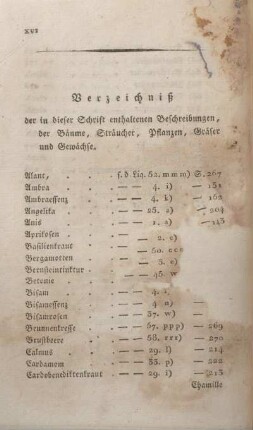 XVI
Verzeichniß
der in dieser Schrift enthaltenen Beschreibungen,
der Bäume, Sträucher, Pflanzen, Gräser
und Gewächse.
Alant, . . s. d. Liq. 52. mmm) S. 267
Ambra . . — — 4. i) — 151
Ambraessenz . . — — 4. k) — 152
Angelika . . — — 25. a) — 204
Anis . . — — 1. a) — 143
Aprikosen . . — — 2. c)
Basilienkraut . . — — 50. ccc
Bergamotten . . — — 3. e)
Bernsteintinktur . — — 45. w
Betonie
Bisam . . — — 4.
Bisamessenz . . — — 4
Bisamrosen . . — — 37. w)
Brunnenkresse . . — — 57. ppp) — 269
Brustbeere . . — — 58. rrr) — 270
Calmus . . — — 29. l) — 214
Cardamom . . — — 33. p) — 222
Cardobenediktenkraut . — — 29. i) — 213
Chamille